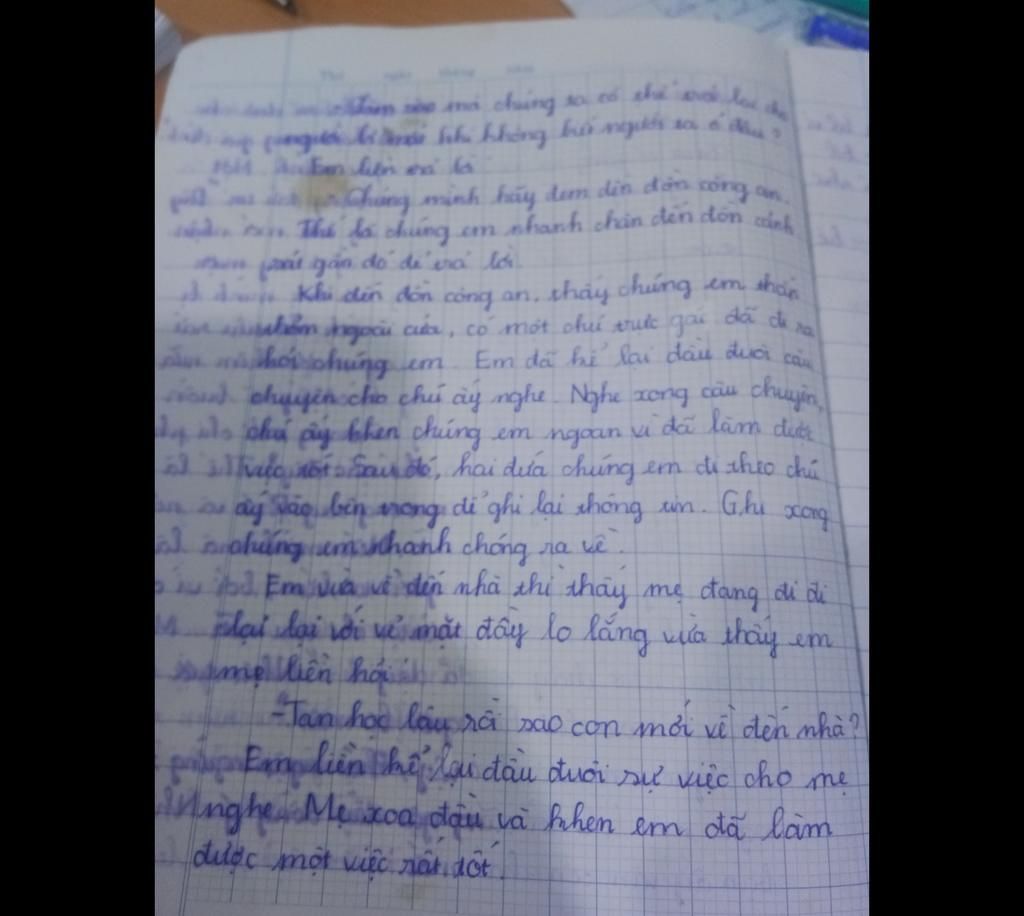 Thứ ngày tháng năm
Làm sao mà chúng ta có thể trả lại cho
người bị mất khi không biết người ta ở đâu?
Em liền trả lời
Chúng mình hãy đem đến đồn công an.
Thế là chúng em nhanh chân đến đồn cảnh
sát gần đó để trả lời.
Khi đến đồn công an, thấy chúng em thấp
thỏm ngoài cửa, có một chú trực gác đã đi ra
hỏi chúng em. Em đã kể lại đầu đuôi câu
chuyện cho chú ấy nghe. Nghe xong câu chuyện,
chú ấy khen chúng em ngoan vì đã làm được
việc tốt. Sau đó, hai đứa chúng em đi theo chú
ấy vào bên trong để ghi lại thông tin. Ghi xong
chúng em nhanh chóng ra về.
Em vừa về đến nhà thì thấy mẹ đang đi đi
lại lại với vẻ mặt đầy lo lắng vừa thấy em
mẹ liền hỏi
-Tan học lâu rồi sao con mới về đến nhà?
Em liền kể lại đầu đuôi sự việc cho mẹ
nghe. Mẹ xoa đầu và khen em đã làm
được một việc rất tốt.